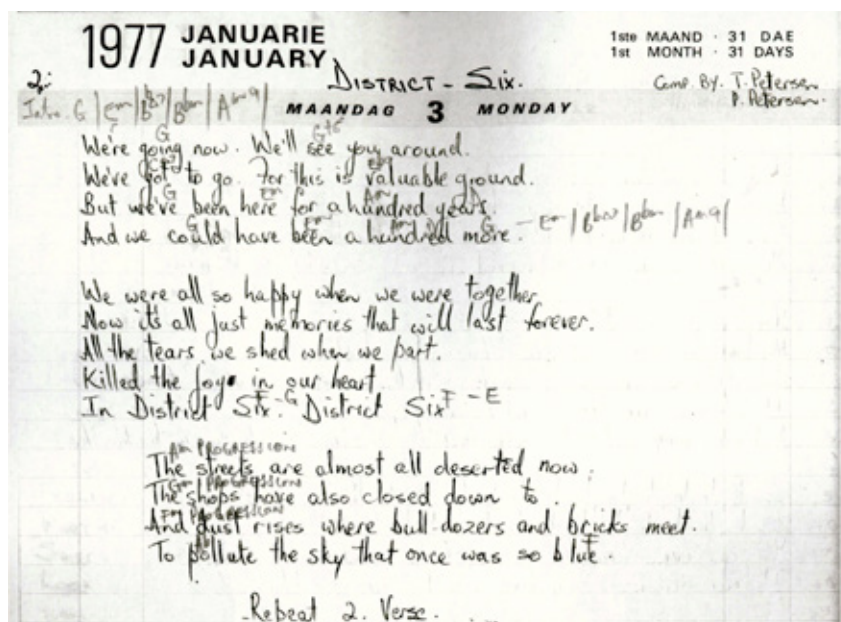 1977 JANUARIE
JANUARY
1ste MAAND · 31 DAE
1st MONTH · 31 DAYS
2:
DISTRICT - SIX.
Comp. By. T. Petersen
P. Petersen.
Intro. G | Em | | Bbm | Am9 |
MAANDAG 3 MONDAY
G
We're going now. We'll see you around.
We've got to go. For this is valuable ground.
G Em Am
But we've been here for a hundred years.
G Em Am G
And we could have been a hundred more. - Em | | Bbm | Am9 |
We were all so happy when we were together
Now it's all just memories that will last forever.
All the tears we shed when we part.
Killed the joy in our heart
F - G F - E
In District Six. District Six
Am PROGRESSION
The streets are almost all deserted now.
Gm PROGRESSION
The shops have also closed down to.
Fm PROGRESSION
And dust rises where bull dozers and bricks meet.
F
To pollute the sky that once was so blue
-Repeat 2. Verse.